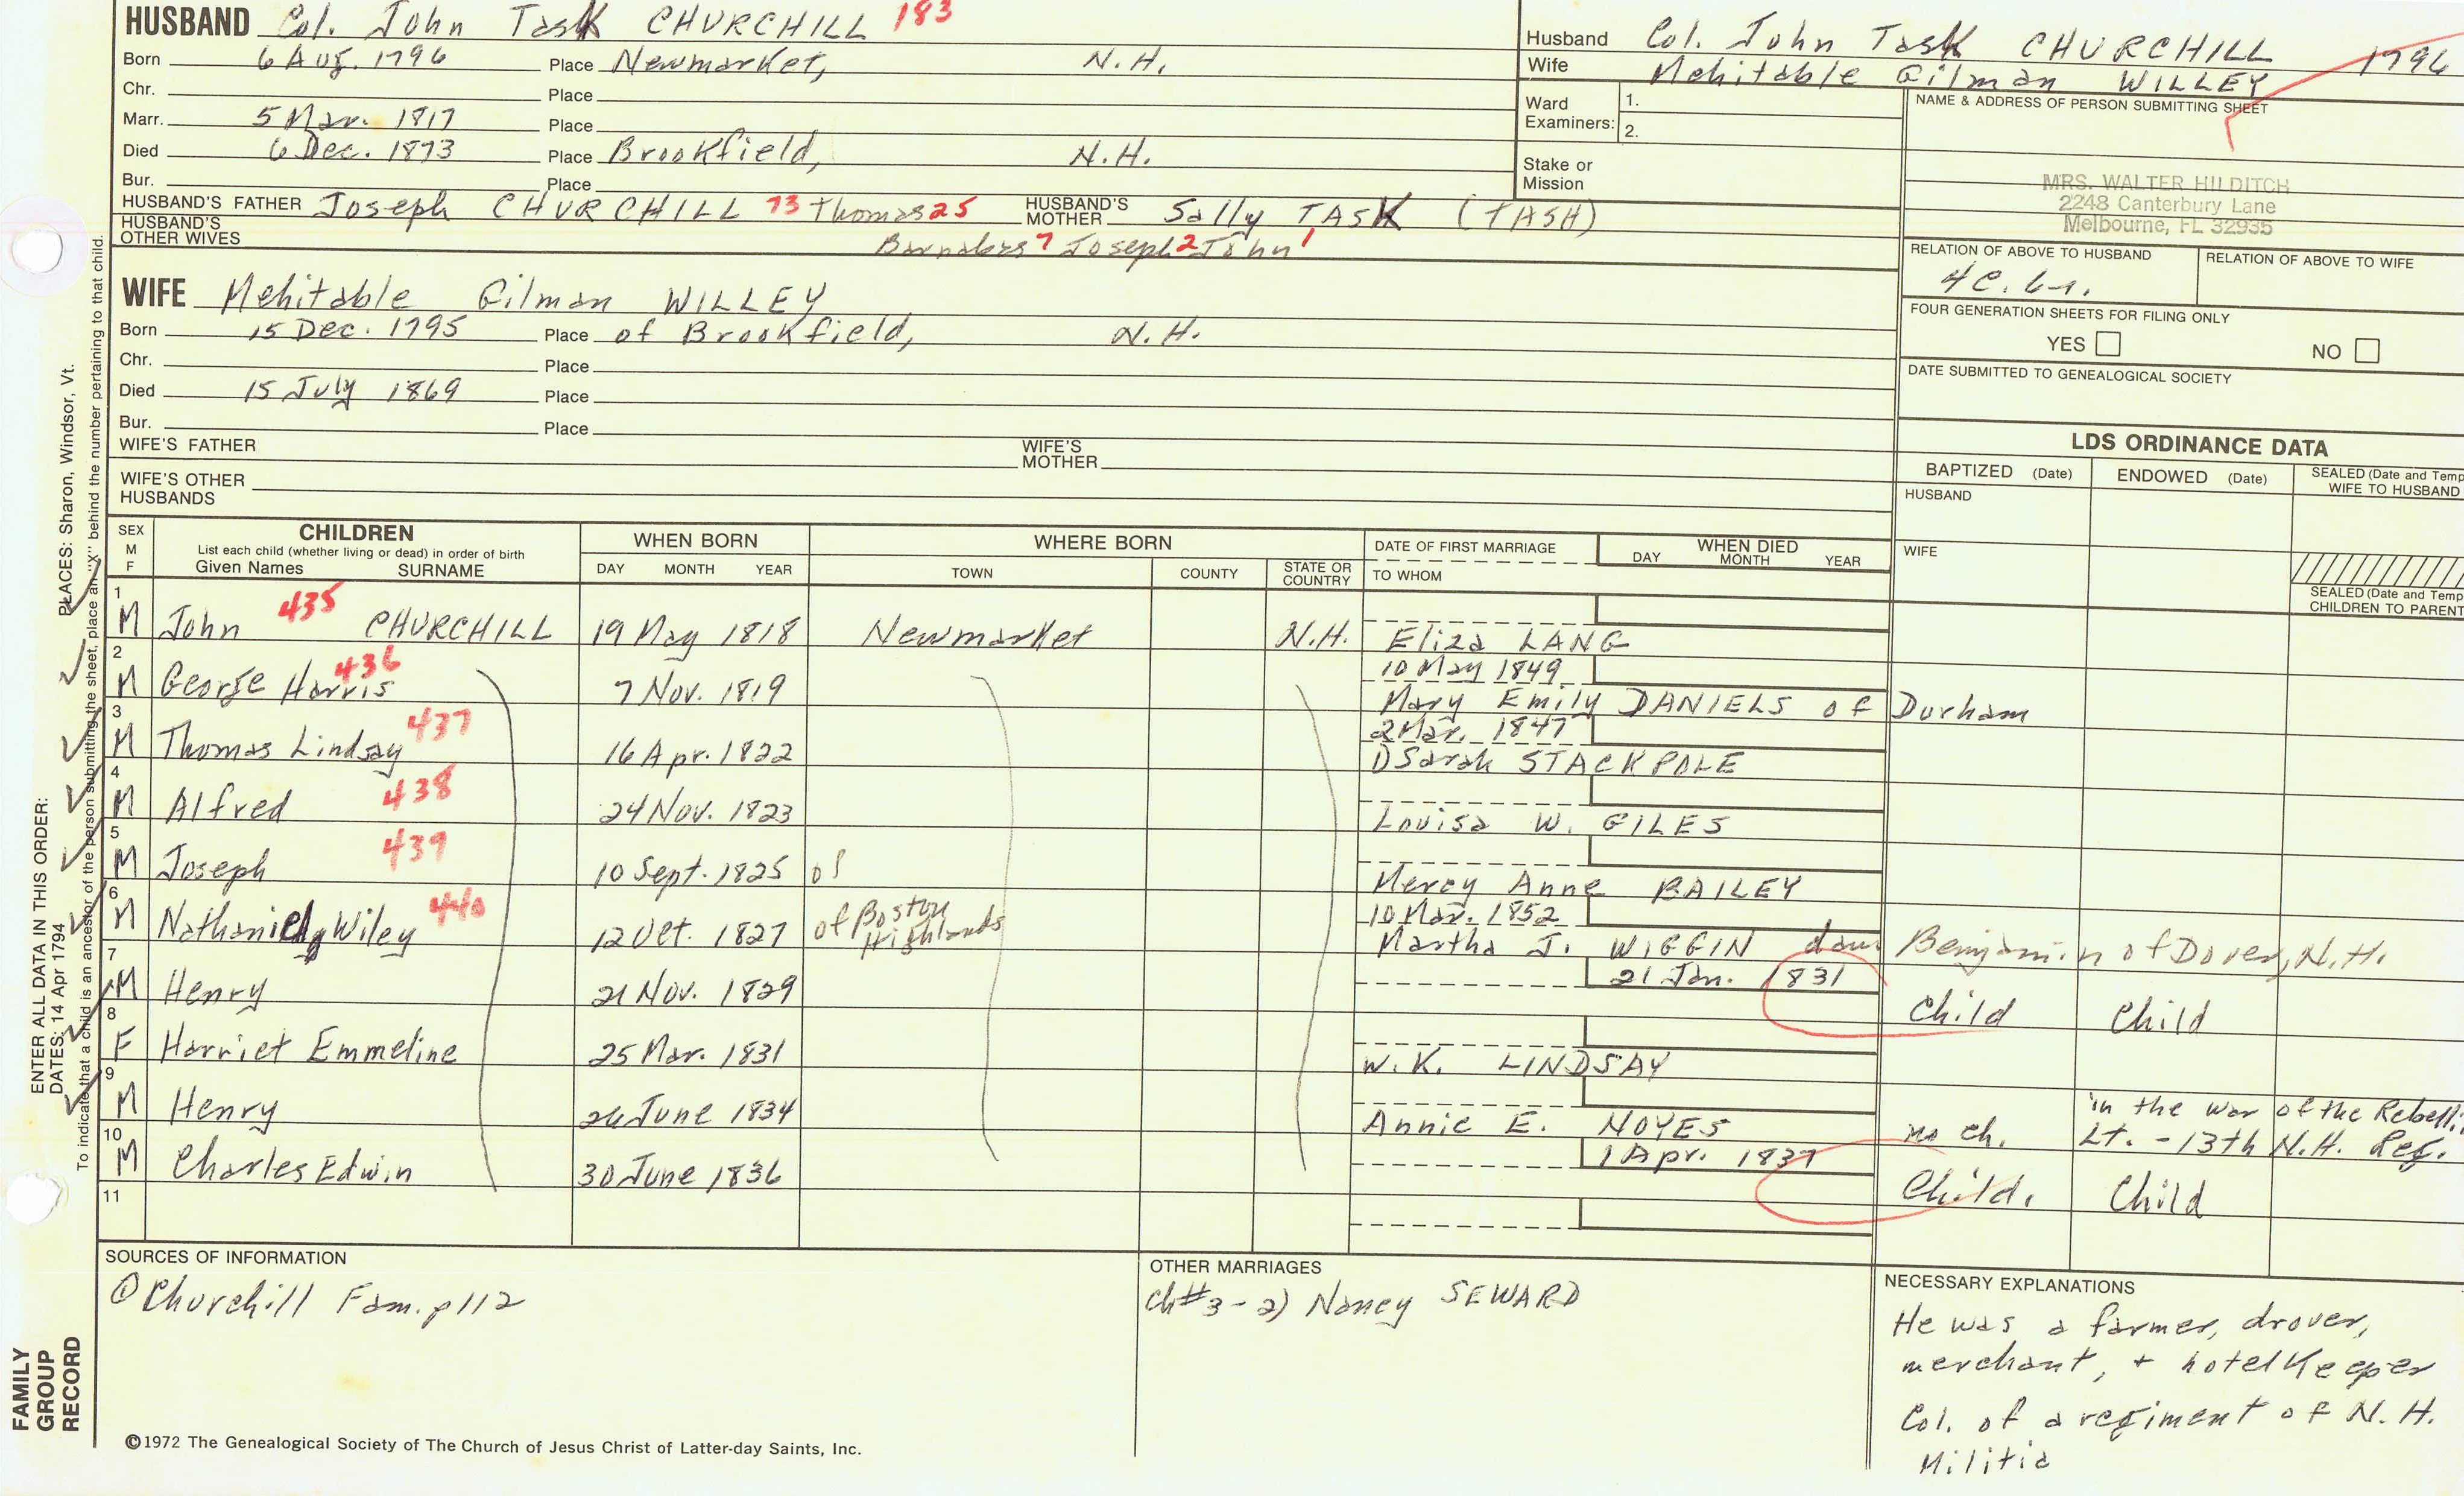 HUSBAND Col. John Task CHURCHILL 183
Born 6 Aug. 1796 Place Newmarket, N.H.
Chr. Place
Marr. 5 Mar. 1817 Place
Died 6 Dec. 1873 Place Brookfield, N.H.
Bur. Place
HUSBAND'S FATHER Joseph CHURCHILL 73 Thomas 25 HUSBAND'S MOTHER Sally TASK (TASH)
HUSBAND'S OTHER WIVES Barnabas 7 Joseph 2 John 1
Husband Col. John Task CHURCHILL 1796
Wife Mehitable Gilman WILLEY
Ward Examiners: 1.
2.
Stake or Mission
NAME & ADDRESS OF PERSON SUBMITTING SHEET
MRS. WALTER HILDITCH
2248 Canterbury Lane
Melbourne, FL 32935
RELATION OF ABOVE TO HUSBAND RELATION OF ABOVE TO WIFE
4C.
FOUR GENERATION SHEETS FOR FILING ONLY
YES NO
DATE SUBMITTED TO GENEALOGICAL SOCIETY
WIFE Mehitable Gilman WILLEY
Born 15 Dec. 1795 Place of Brookfield, N.H.
Chr. Place
Died 15 July 1869 Place
Bur. Place
WIFE'S FATHER WIFE'S MOTHER
WIFE'S OTHER HUSBANDS
LDS ORDINANCE DATA
BAPTIZED (Date) ENDOWED (Date) SEALED (Date and Temp
WIFE TO HUSBAND
HUSBAND
WIFE
SEALED (Date and Temp
CHILDREN TO PARENT
SEX M F CHILDREN WHEN BORN WHERE BORN DATE OF FIRST MARRIAGE WHEN DIED
List each child (whether living or dead) in order of birth
Given Names SURNAME DAY MONTH YEAR TOWN COUNTY STATE OR COUNTRY TO WHOM DAY MONTH YEAR
1 M John 435 CHURCHILL 19 May 1818 Newmarket N.H. Eliza LANG
10 May 1849
2 M George Harris 436 7 Nov. 1819 Mary Emily DANIELS of Durham
2 Mar. 1847
3 M Thomas Lindsay 437 16 Apr. 1822 1) Sarah STACKPOLE
4 M Alfred 438 24 Nov. 1823 Louisa W. GILES
5 M Joseph 439 10 Sept. 1825 of Mercy Anne BAILEY
10 Mar. 1852
6 M Nathaniel Wiley 440 12 Oct. 1827 of Boston Highlands Martha J. WIGGIN dau Benjamin of Dover, N.H.
21 Jan. 1831
7 M Henry 21 Nov. 1829 Child Child
8 F Harriet Emmeline 25 Mar. 1831 W.K. LINDSAY
9 M Henry 26 June 1834 Annie E. NOYES no ch. in the war of the Rebelli
Lt. - 13th N.H. Reg.
1 Apr. 1837
10 M Charles Edwin 30 June 1836 Child. Child
11
SOURCES OF INFORMATION
① Churchill Fam. p 112
OTHER MARRIAGES
ch#3 - 2) Nancy SEWARD
NECESSARY EXPLANATIONS
He was a farmer, drover,
merchant, + hotel Keeper
Col. of a regiment of N.H.
Militia
©1972 The Genealogical Society of The Church of Jesus Christ of Latter-day Saints, Inc.
FAMILY
GROUP
RECORD
ENTER ALL DATA IN THIS ORDER:
DATES: 14 Apr 1794 PLACES: Sharon, Windsor, Vt.
To indicate that a child is an ancestor of the person submitting the sheet, place an "X" behind the number pertaining to that child.